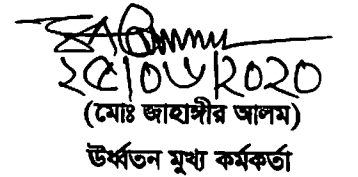 ২৫|০৬|২০২০
(মোঃ জাহাঙ্গীর আলম)
উর্ধ্বতন মুখ্য কর্মকর্তা